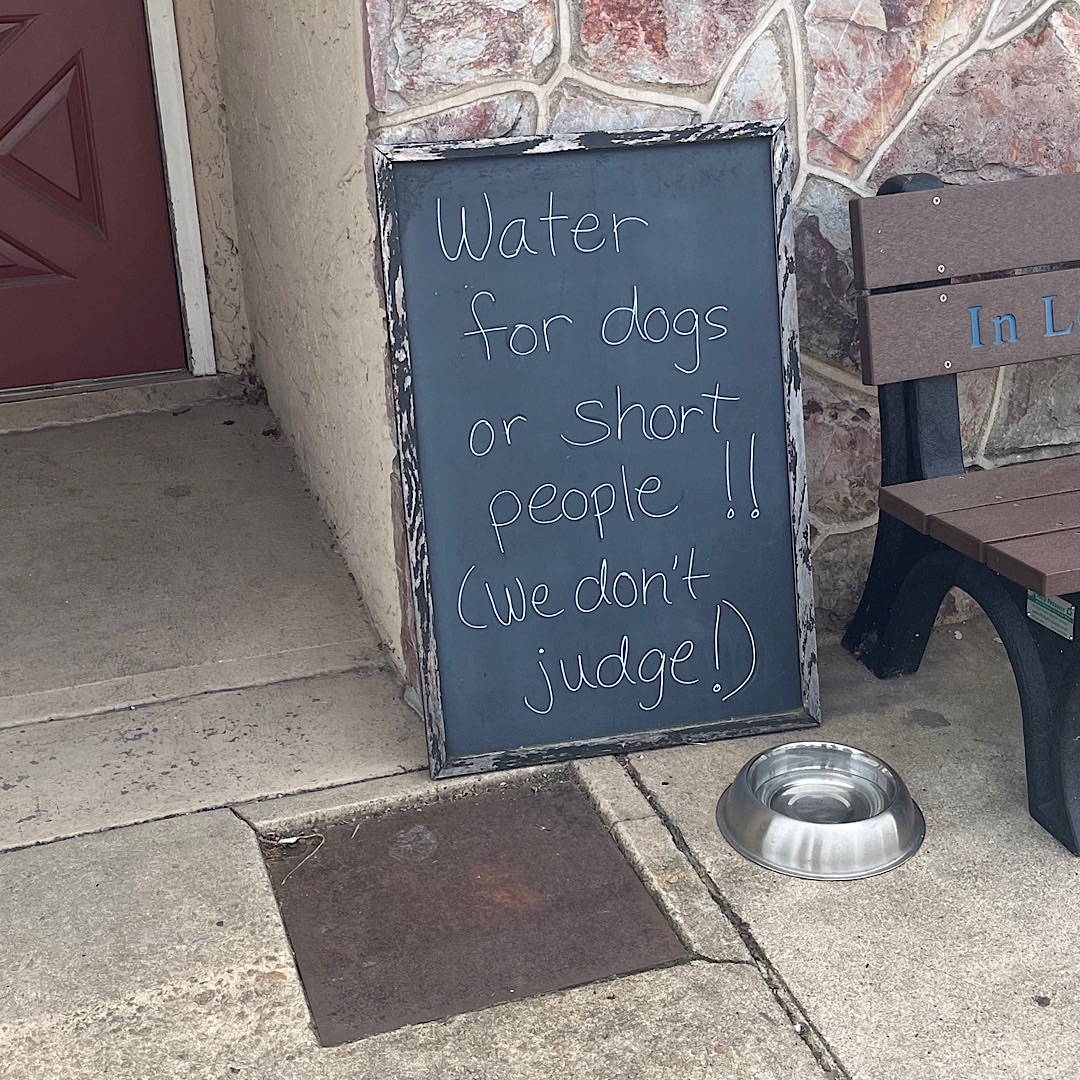 Water
for dogs
or short
people !!
(we don't
judge!)
In L